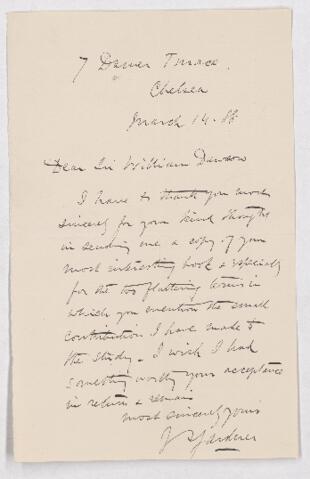 7 Damer Terrace
Chelsea
March 14. 88
Dear Sir William Dawson
I have to thank you most
sincerely for your kind thought
in sending me a copy of your
most interesting book & especially
for the too flattering terms in
which you mention the small
contribution I have made to
the study. I wish I had
something worthy your acceptance
in return & remain
most sincerely yours
Gardner